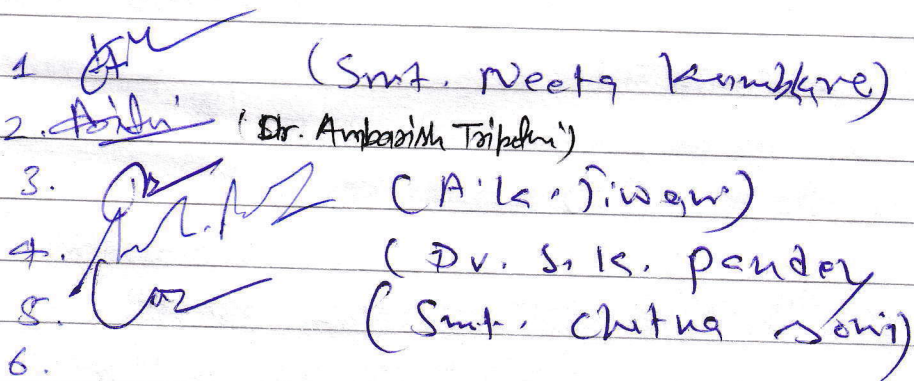 1 (Smt. Neeta Kumbhare)
2. (Dr. Ambarish Tripathi)
3. (A.K. Tiwari)
4. (Dr. S.K. Pandey
5. (Smt. Chetna Soni)
6.